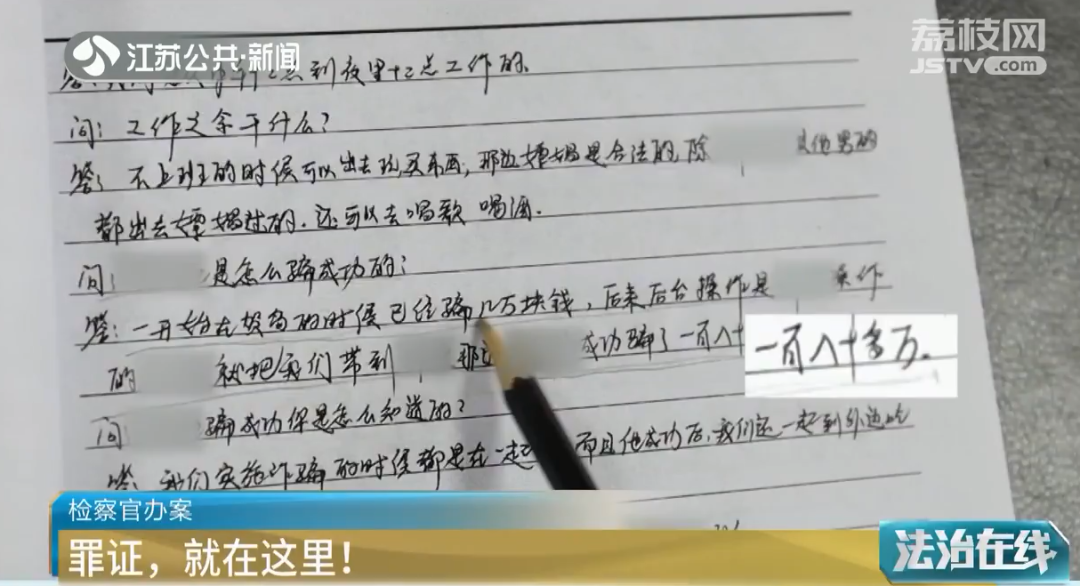 江苏公共·新闻
荔枝网
JSTV.com
到夜里十二点工作的.
问: 工作之余干什么?
答: 不上班的时候可以出去玩买东西, 那边嫖娼是合法的, 除 其他男的
都出去嫖娼过的. 还可以去唱歌 喝酒.
问: 是怎么骗成功的?
答: 一开始在 的时候已经骗几万块钱, 后来后台操作是 操作
的 就把我们带到 那边 成功骗了一百八十
一百八十多万.
问 骗成功你是怎么知道的?
答: 我们实施诈骗的时候都是在一起 而且他成功后, 我们还一起到外边吃
检察官办案
罪证，就在这里！
法治在线